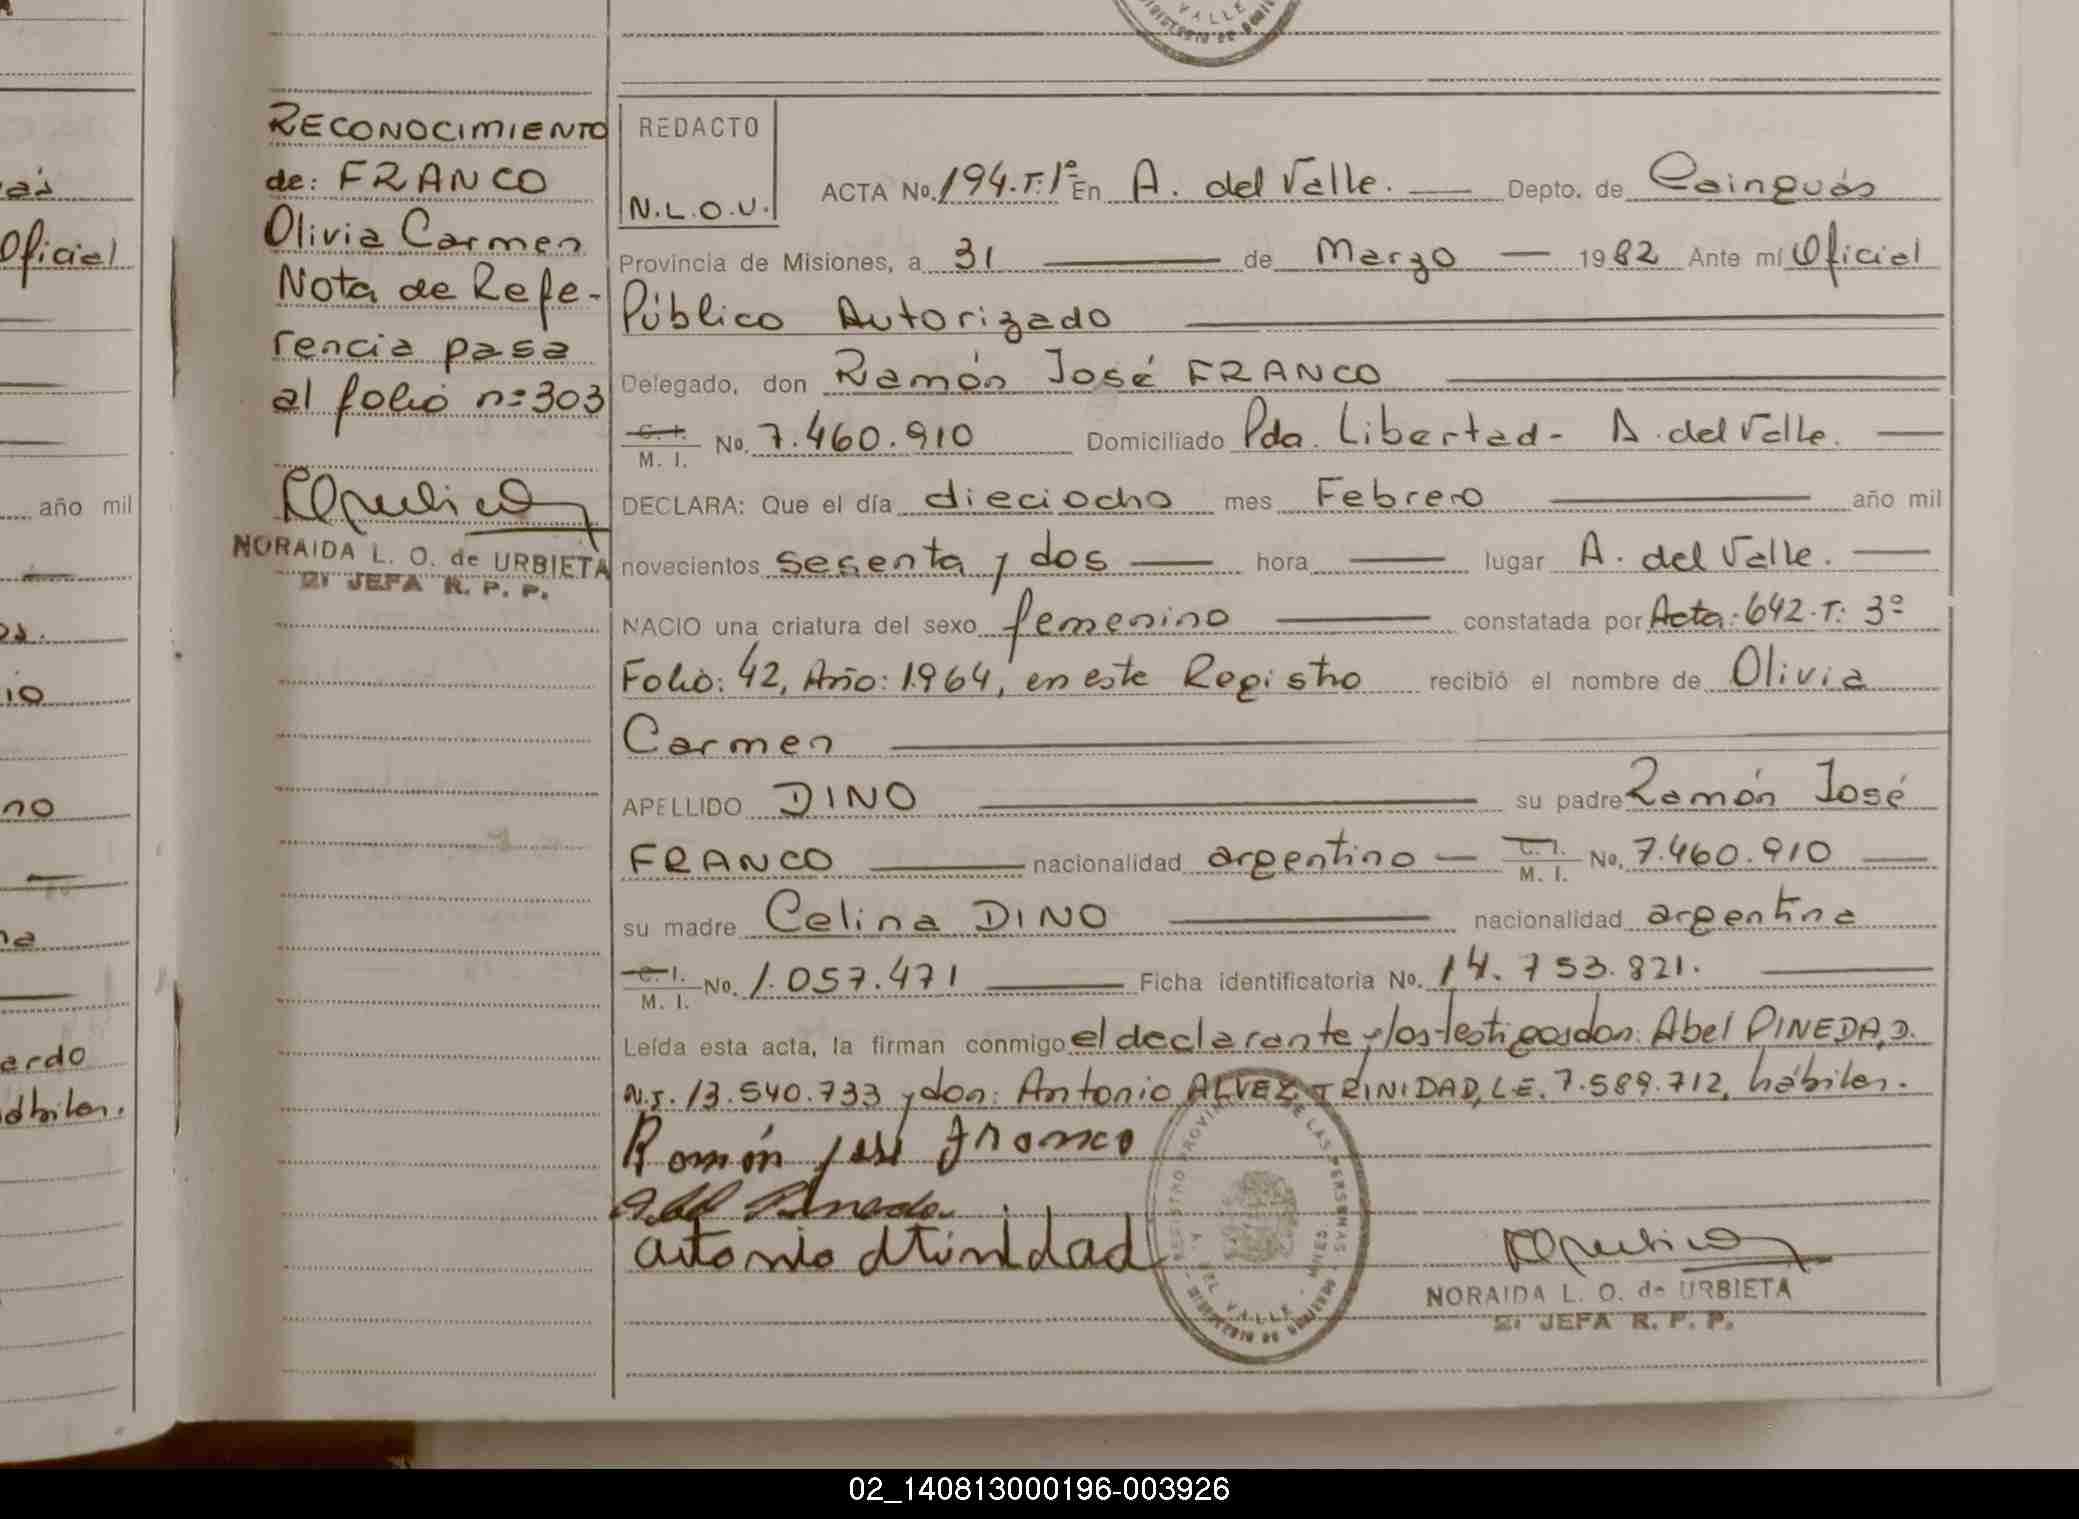 as
Oficial
año mil
os.
io
no
na
ardo
ábiles.
VALLE
RECONOCIMIENTO
de: FRANCO
Olivia Carmen
Nota de Refe-
rencia pasa
al folio nº 303
NORAIDA L. O. de URBIETA
2ª JEFA R. P. P.
REDACTO
N.L.O.U.
ACTA No. 194.T:1º En A. del Valle. Depto. de Cainguás
Provincia de Misiones, a 31 de Marzo 1982 Ante mí Oficial
Público Autorizado
Delegado, don Ramón José FRANCO
C. I. M. I. No. 7.460.910 Domiciliado Pda. Libertad - A. del Valle.
DECLARA: Que el día dieciocho mes Febrero año mil
novecientos sesenta y dos hora lugar A. del Valle.
NACIO una criatura del sexo femenino constatada por Acta: 642.T: 3º
Folio: 42, Año: 1.964, en este Registro recibió el nombre de Olivia
Carmen
APELLIDO DINO su padre Ramón José
FRANCO nacionalidad argentino C. I. M. I. No. 7.460.910
su madre Celina DINO nacionalidad argentina
C. I. M. I. No. 1.057.471 Ficha identificatoria No. 14.753.821.
Leída esta acta, la firman conmigo el declarante y los testigos don: Abel PINEDA, D.
N.I. 13.540.733 y don: Antonio ALVEZ TRINIDAD, L.E. 7.589.712, hábiles.
Ramón José Franco
Abel Pineda
Antonio Atrinidad
REGISTRO PROVINCIAL DE LAS PERSONAS
A. DEL VALLE - MNES.
NORAIDA L. O. de URBIETA
2ª JEFA R. P. P.
02_140813000196-003926